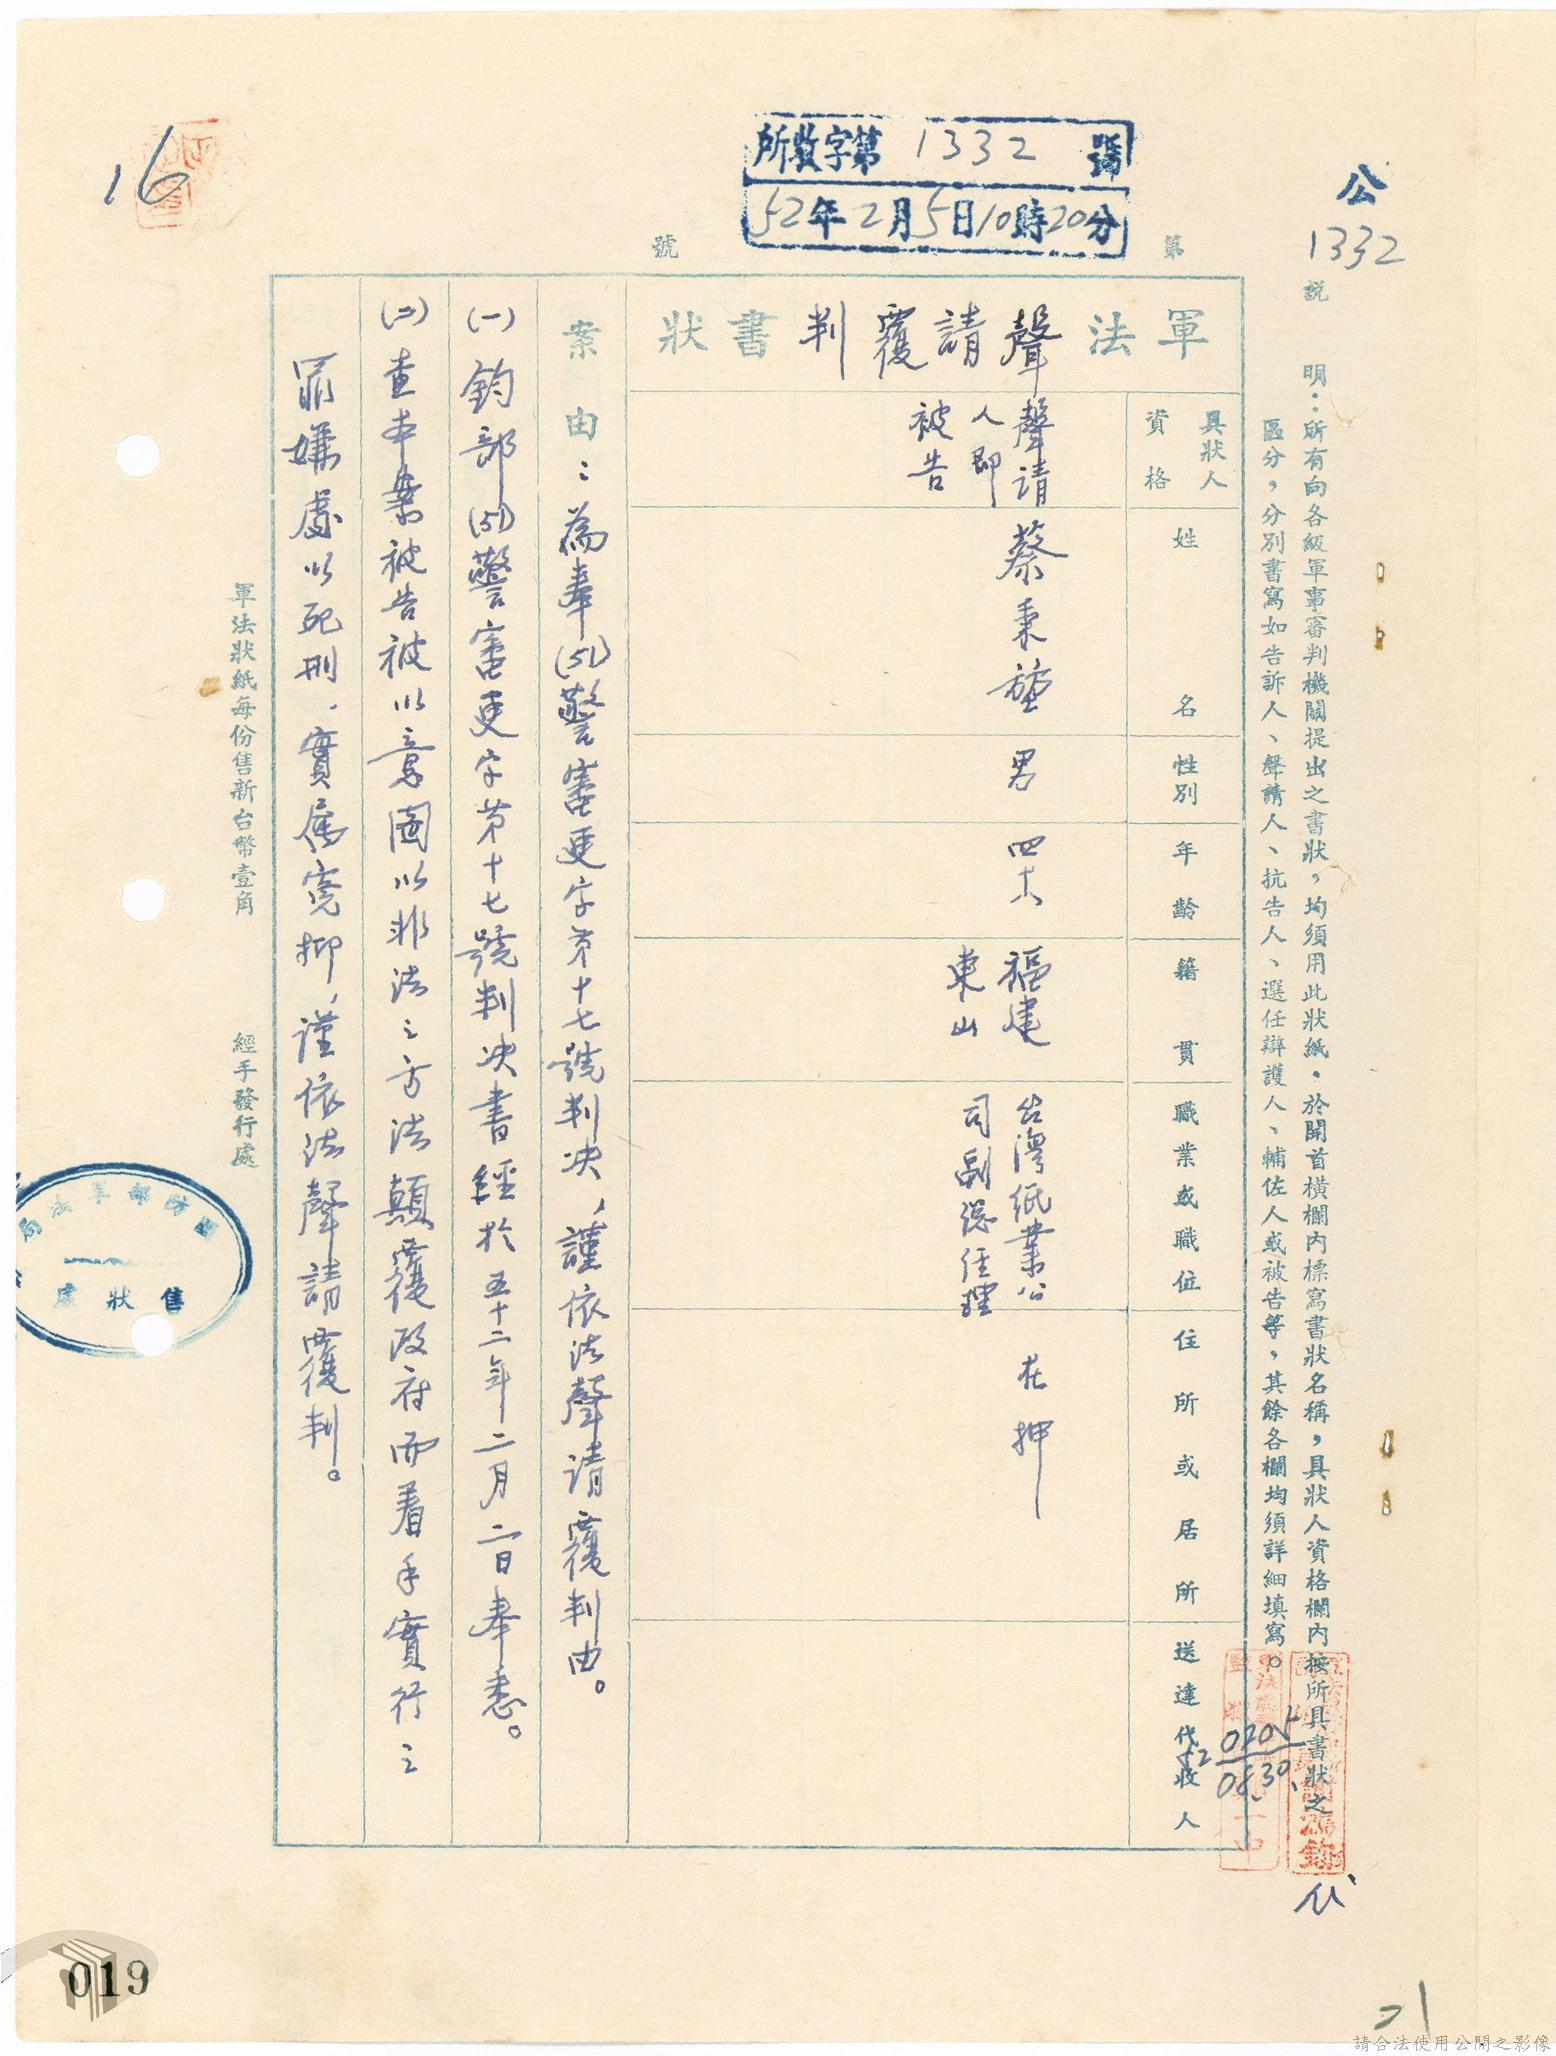 所數字第1332號
52年2月5日10時20分
公
1332
16
第
號
說明：所有向各級軍事審判機關提出之書狀，均須用此狀紙。於開首橫欄內標寫書狀名稱，具狀人資格欄內按所具書狀之
區分，分別書寫如告訴人、聲請人、抗告人、選任辯護人、輔佐人或被告等，其餘各欄均須詳細填寫。
軍法聲請覆判書狀
具狀人
資格
姓名
性別
年齡
籍貫
職業或職位
住所或居所
送達代收人
聲請
人即
被告
蔡秉
男
四十八
福建
東山
台灣紙業公
司副總經理
在押
案由：為奉(51)警審更字第十七號判決，謹依法聲請覆判由。
(一)鈞部(51)警審更字第十七號判決書經於五十二年二月二日奉悉。
(二)查本案被告被以意圖以非法之方法顛覆政府而着手實行之
罪嫌處以死刑，實屬寃抑，謹依法聲請覆判。
軍法狀紙每份售新台幣壹角
經手發行處
國防部軍法局
售狀處
52
0205
0830
019
21
請合法使用公開之影像